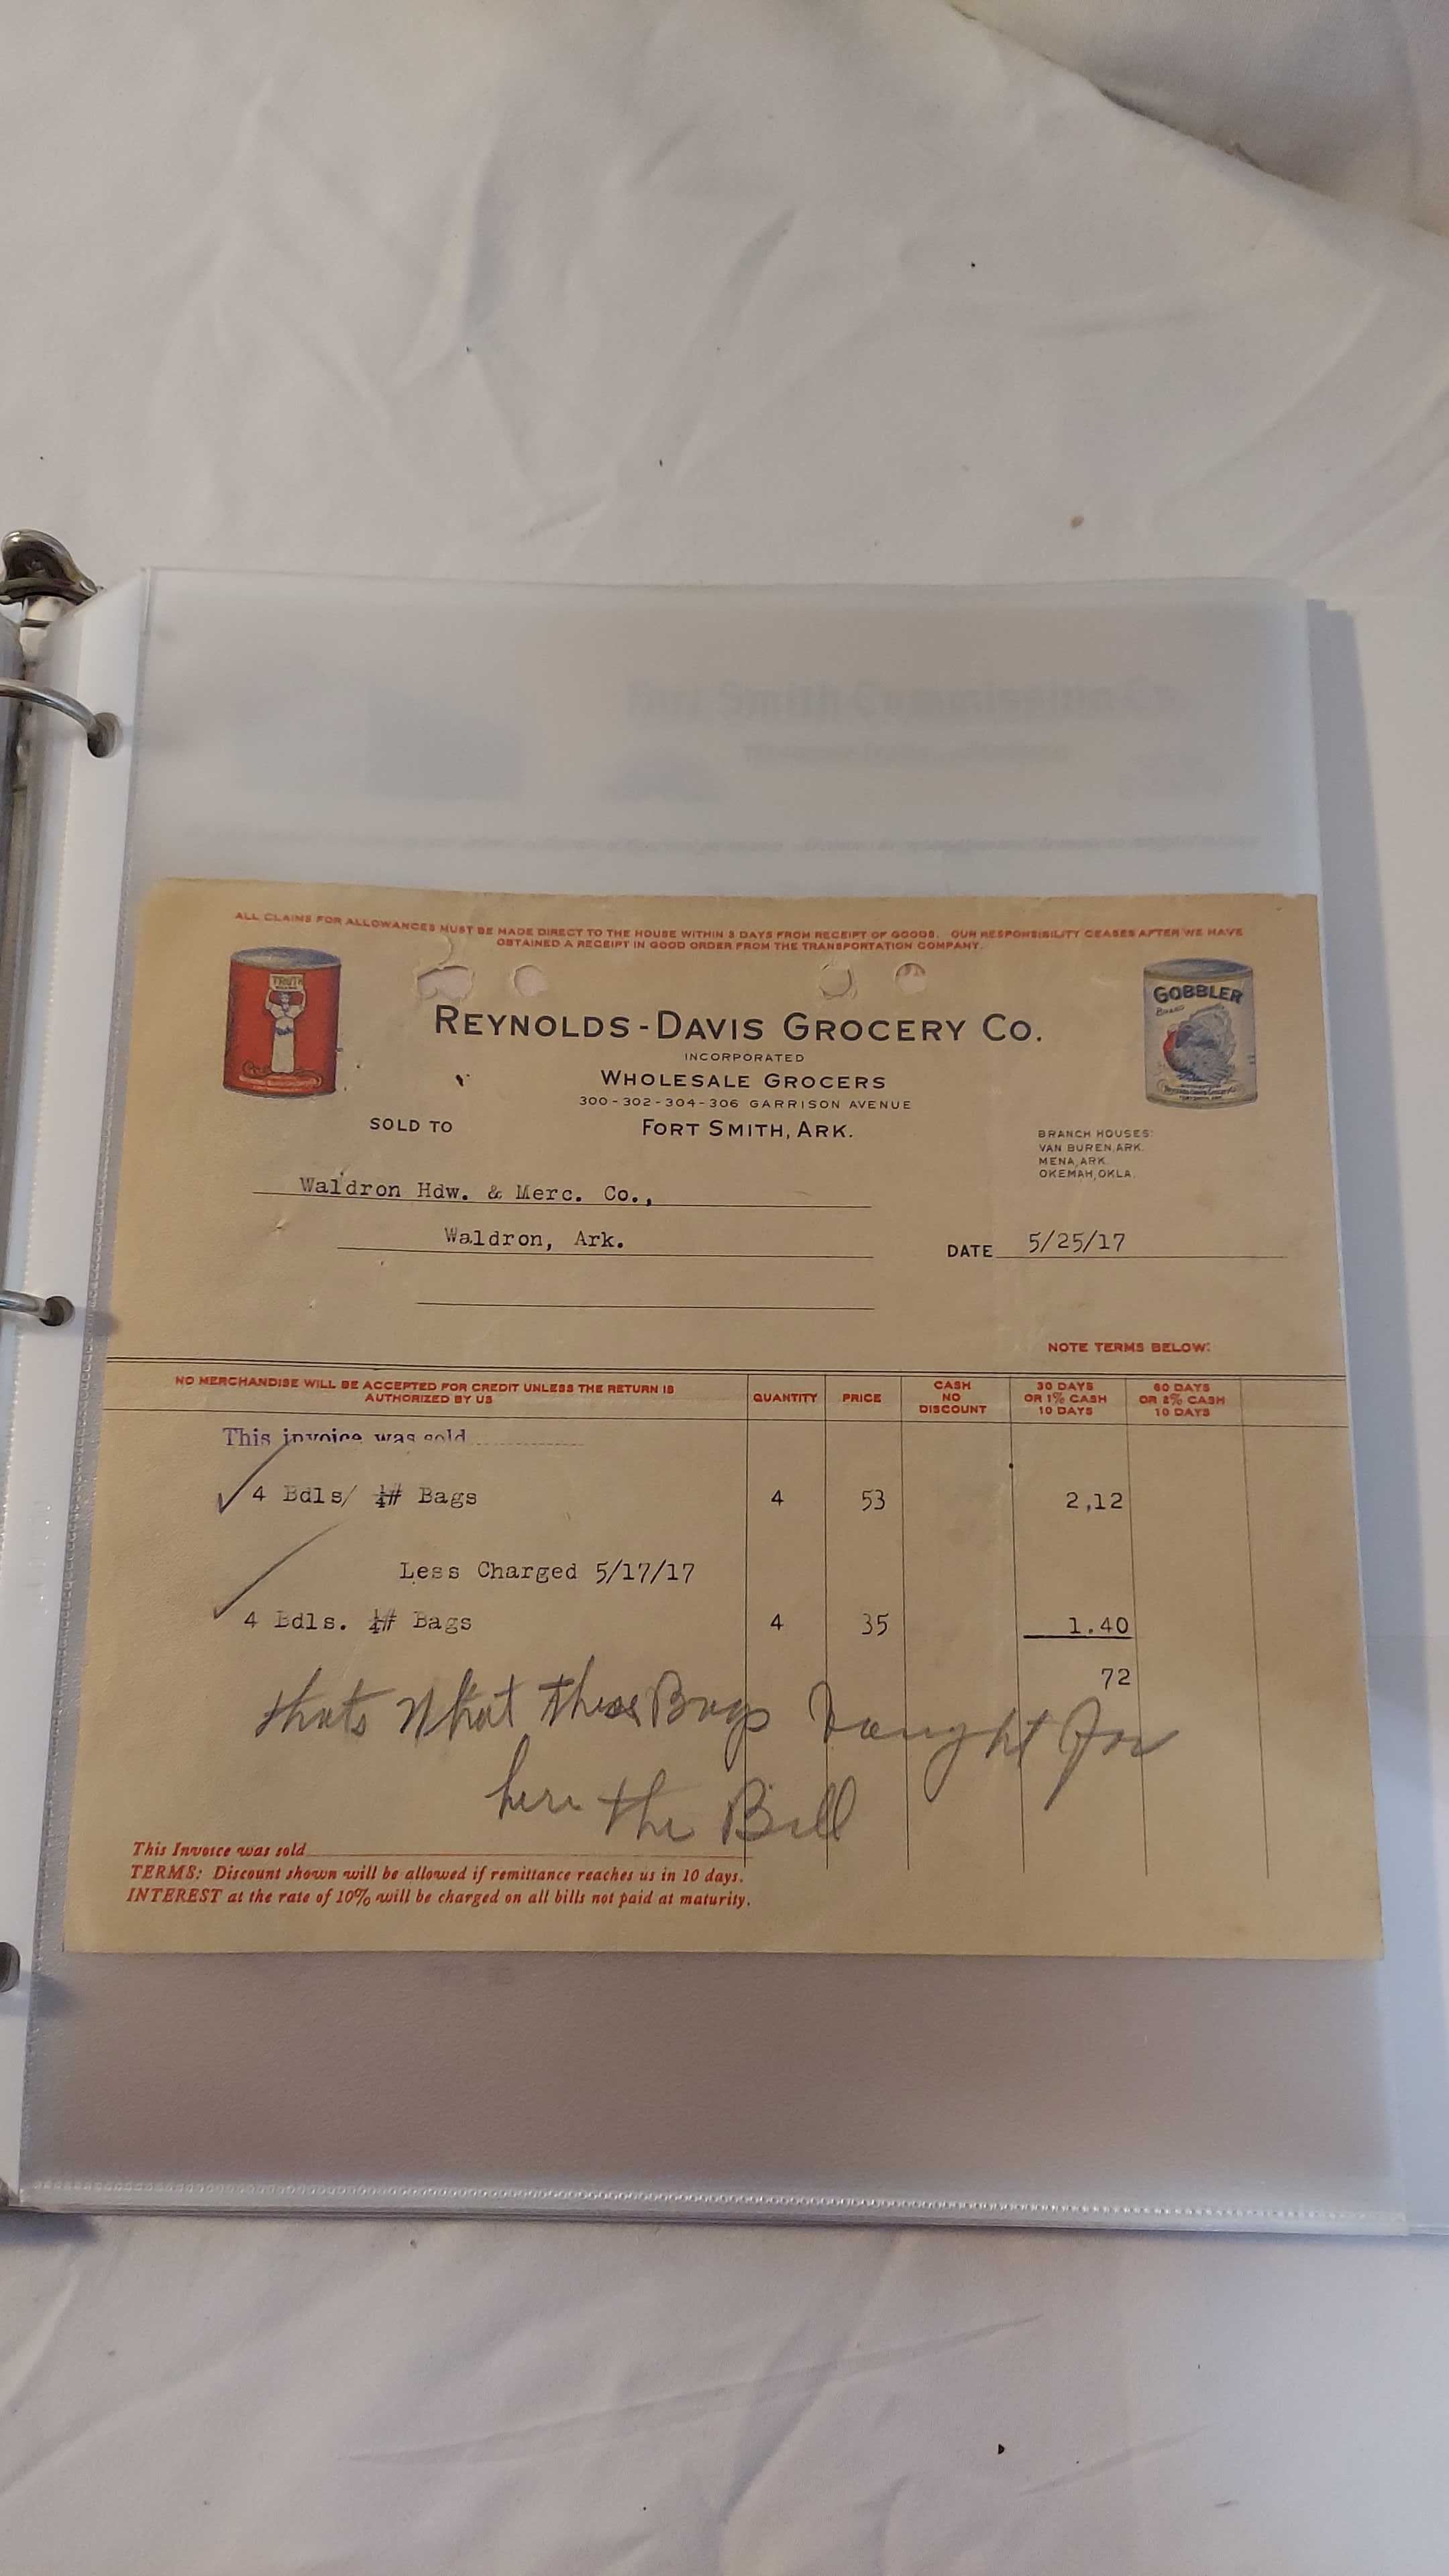 Fort Smith Commission Co
ALL CLAIMS FOR ALLOWANCES MUST BE MADE DIRECT TO THE HOUSE WITHIN 5 DAYS FROM RECEIPT OF GOODS. OUR RESPONSIBILITY CEASES AFTER WE HAVE
OBTAINED A RECEIPT IN GOOD ORDER FROM THE TRANSPORTATION COMPANY.
TRUTH
GOBBLER
BRAND
REYNOLDS-DAVIS GROCERY CO.
INCORPORATED
WHOLESALE GROCERS
300-302-304-306 GARRISON AVENUE
SOLD TO
FORT SMITH, ARK.
BRANCH HOUSES:
VAN BUREN, ARK.
MENA, ARK.
OKEMAH, OKLA.
Waldron Hdw. & Merc. Co.,
Waldron, Ark.
DATE 5/25/17
NOTE TERMS BELOW:
NO MERCHANDISE WILL BE ACCEPTED FOR CREDIT UNLESS THE RETURN IS
AUTHORIZED BY US
QUANTITY
PRICE
CASH
NO
DISCOUNT
30 DAYS
OR 1% CASH
10 DAYS
60 DAYS
OR 2% CASH
10 DAYS
This invoice was sold
4 Bdls/ ¼# Bags 4 53 2,12
Less Charged 5/17/17
4 Bdls. ¼# Bags 4 35 1.40
72
thats What these Bags bought for
here the Bill
This Invoice was sold
TERMS: Discount shown will be allowed if remittance reaches us in 10 days.
INTEREST at the rate of 10% will be charged on all bills not paid at maturity.